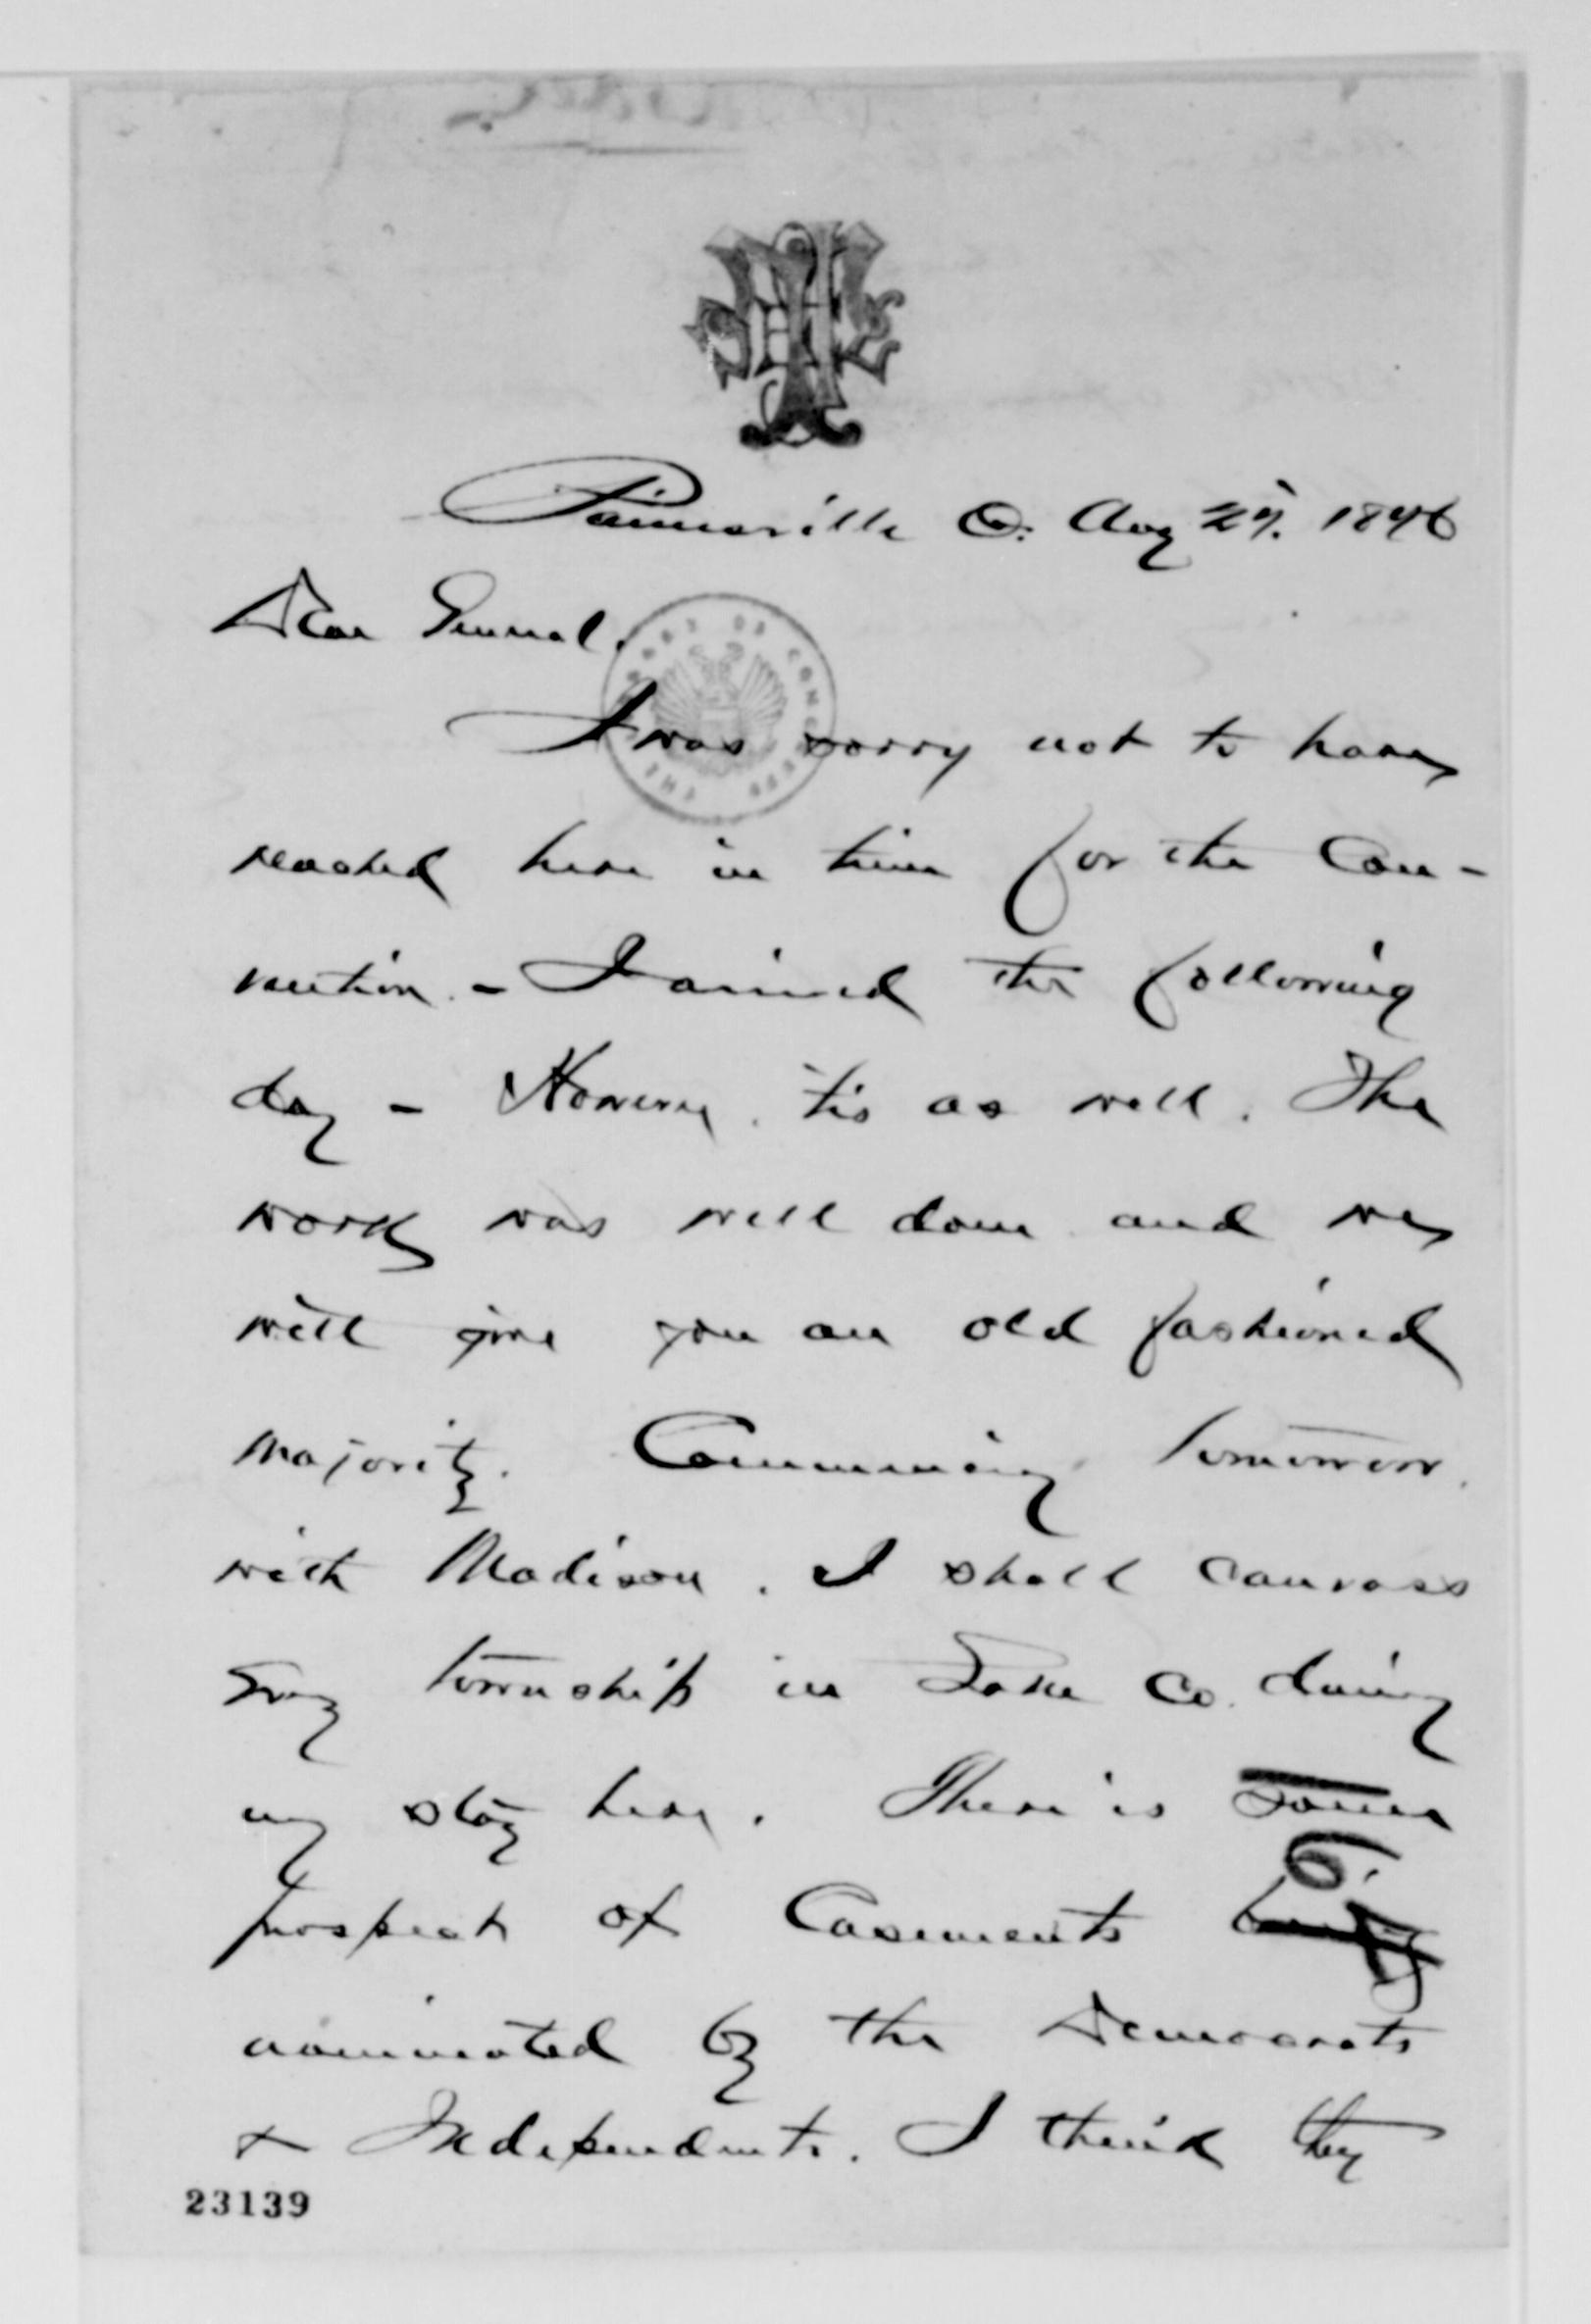 Painesville O. Aug 27. 1876
Dear General.
I was sorry not to have
reached here in time for the Con-
vention. - I arrived the following
day - However, 'tis as well. The
work was well done and we
will give you an old fashioned
majority. Commencing tomorrow
with Madison. I shall canvass
Every township in Lake Co. during
my stay here. There is some
prospect of Casements being
nominated by the Democrats
& Independents. I think they
23139